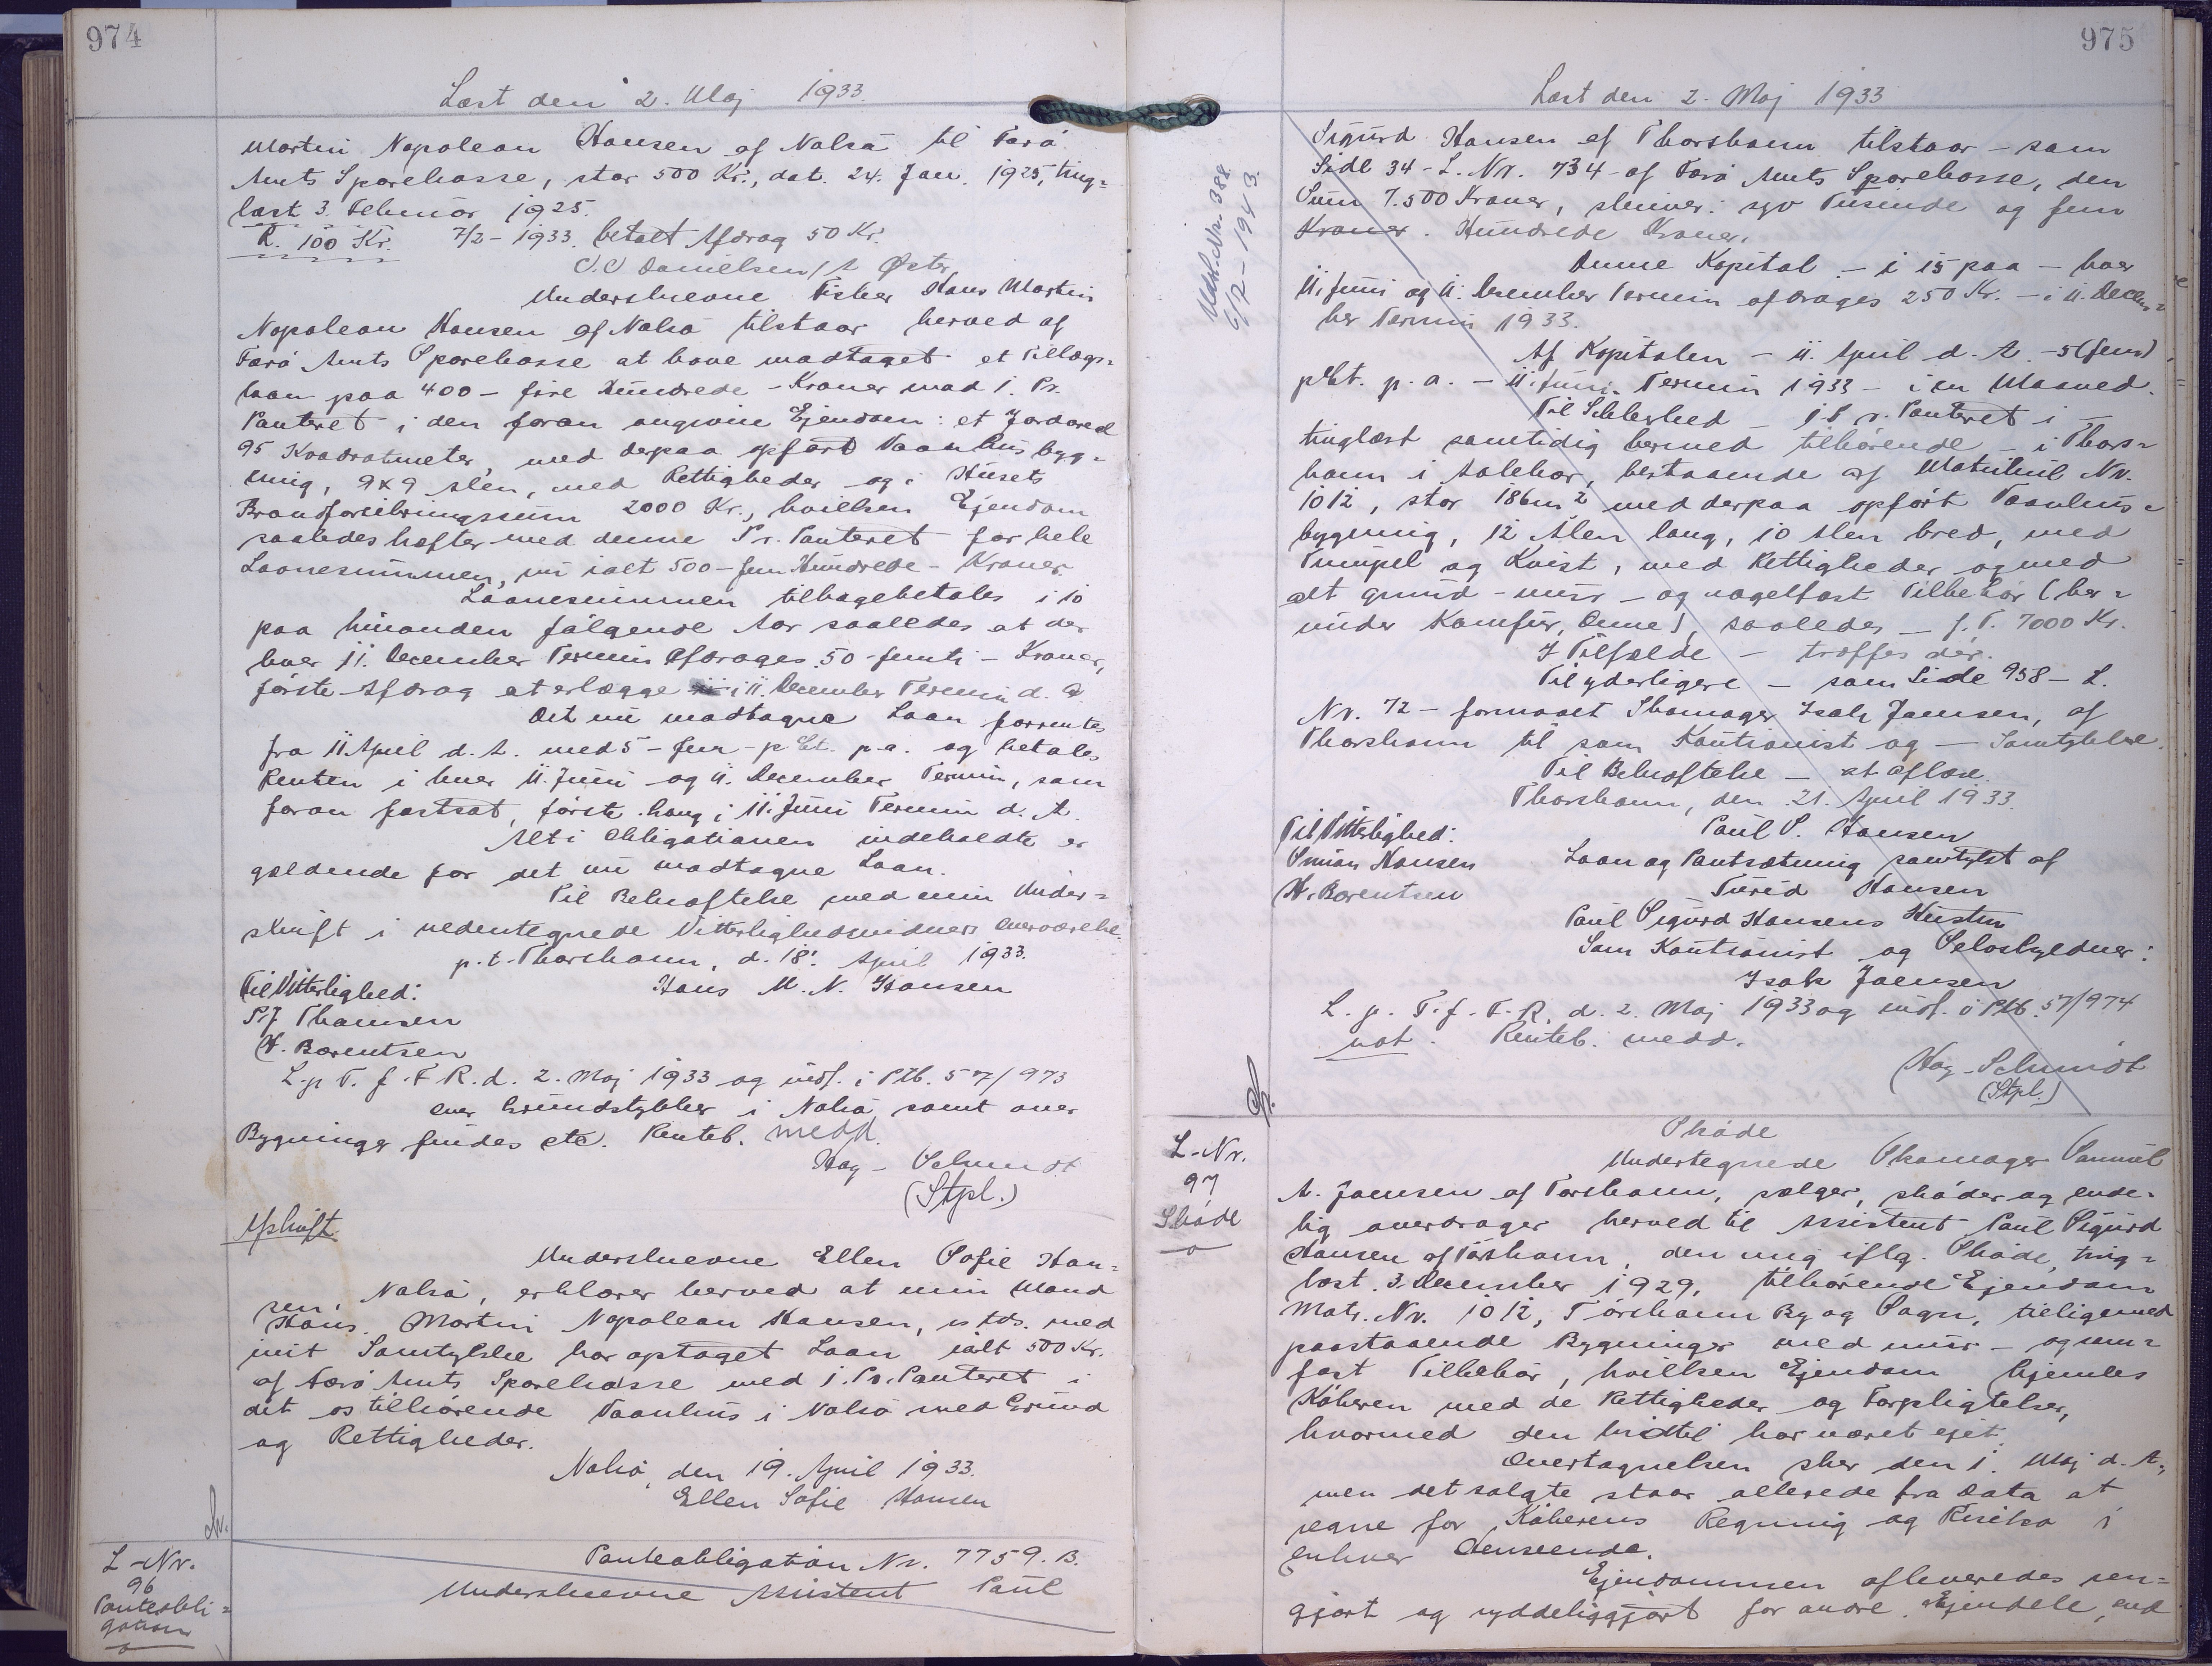 974
Læst den 2. Maj 1933.
Martin Napolean Hansen af Nolsö til Færö
Amts Sparekasse, stor 500 Kr., dat. 24. Jan. 1925, ting-
læst 3. Februar 1925.
R. 100 Kr. 7/2-1933. betalt Afdrag 50 Kr.
Danielsen / A Øster
Underskrevne Fisker Hans Martin
Napolean Hansen af Nolsö tilstaar herved af
Færö Amts Sparekasse at have modtaget et Tillægs-
laan paa 400 - fire Hundrede - Kroner mod 1. Pr.
Panteret i den foran angivne Ejendom: et Jordareal
95 Kvadratmeter, med derpaa opført Vaanhusbyg-
ning, 9x9 Alen, med Rettigheder og i Husets
Brandforsikringssum 2000 Kr., hvilken Ejendom
saaledes hæfter med denne Pr. Panteret for hele
Laanesummen, nu ialt 500 - fem Hundrede - Kroner.
Laanesummen tilbagebetales i 10
paa hinanden følgende Aar saaledes at der
hver 11. December Termin Afdrages 50 - femti - Kroner,
første Afdrag at erlægge i 11. December Termin d. A.
Det nu modtagne Laan forrentes
fra 11 April d. A. med 5 - fem - pCt. p.a. og betales
Renten i hver 11. Juni og 11. December Termin, som
foran fastsat, første Gang i 11. Juni Termin d. A.
Alt i Obligationen indeholdte er
gældende for det nu modtagne Laan.
Til Bekræftelse med min Under-
skrift i nedentegnede Vitterlighedsvidners Overværelse.
p.t. Thorshavn, d. 18. April 1933.
Til Vitterlighed: Hans M. N. Hansen
P.J Thomsen
H. Barentsen
L. p T. f. F R. d. 2. Maj 1933 og indf. i Ptb. 57/973
Over Grundstykker i Nolsö samt over
Bygninger findes etc. Renteb. medd.
Hag-Schmidt
(Stpl.)
Afskrift.
Underskrevne Ellen Sofie Han-
sen, Nolsö, erklærer herved at min Mand
Hans Martin Napolean Hansen, is tds. med
mit Samtykke har optaget Laan ialt 500 Kr.
af Færö Amts Sparekasse med 1. Pr. Panteret i
det os tilhörende Vaanhus i Nolsö med Grund
og Rettigheder.
Nolsö, den 19. April 1933.
Ellen Sofie Hansen
L-Nr.
96
Panteobli-
gation
Panteobligation Nr. 7759. B.
Underskrevne Assistent Paul
975
Læst den 2. Maj 1933
Medd. Nr. 388.
6/2-1943.
Sigurd Hansen af Thorshavn tilstaar - som
Side 34 - L. Nr. 734 - af Færö Amts Sparekasse, den
Sum 7.500 Kroner, skriver: syv Tusinde og fem
Kroner. Hundrede Kroner.
Denne Kapital - i 15 paa - hver
11. Juni og 11. December Termin afdrages 250 Kr. - i 11. Decem-
ber Termin 1933.
Af Kapitalen - 11. April d. A. - 5 (fem)
pCt. p. a. - 11. Juni Termin 1933 - i en Maaned.
Til Sikkerhed - 1ste Pr. Panteret i
tinglæst samtidig hermed tilhørende - i Thors-
havn i Aalekær, bestaaende af Matrikul Nr.
1012, stor 186 m2 med derpaa opført Vaanhus-
bygning, 12 Alen lang, 10 Alen bred, med
Pumpel og Kvist, med Rettigheder og med
alt grund - mur - og nagelfast Tilbehör (her-
under Komfur, Ovne) saaledes - f. T. 7000 Kr.
I Tilfælde - træffes der.
Til yderligere - som Side 958 - L.
Nr. 72 - formaaet Skomager Isak Joensen, af
Thorshavn til som Kautionist og - Samtykke.
Til Bekræftelse - at aflæse.
Thorshavn, den 21. April 1933.
Til Vitterlighed: Paul S. Hansen
Simon Hansen Laan og Pantsætning samtykt af
H. Barentsen Turid Hansen
Paul Sigurd Hansens Hustru
Som Kautionist og Selvskyldner:
Isak Joensen
L. p. T. f. F. R. d. 2. Maj 1933 og indf. i Ptb. 57/974
not. Renteb. medd.
Hag-Schmidt
(Stpl.)
L-Nr.
97
Skøde
Skøde
Undertegnede Skomager Samuel
A. Joensen af Torshavn, sælger, skøder og ende-
lig overdrager herved til Assistent Paul Sigurd
Hansen af Torshavn, den mig iflg. Skøde, ting-
læst 3. December 1929, tilhørende Ejendom
Matr. Nr. 1012, Torshavn By og Sogn, tilligemed
paastaaende Bygninger med mur - og søm-
fast Tilbehör, hvilken Ejendom hjemles
Køberen med de Rettigheder og Forpligtelser,
hvormed den hidtil har været ejet.
Overtagelsen sker den 1. Maj d. A.,
men det solgte staar allerede fra Data at
regne for Køberens Regning og Risiko i
enhver Henseende.
Ejendommen afleveredes ren-
gjort og ryddeliggjort for andre Ejendele, end